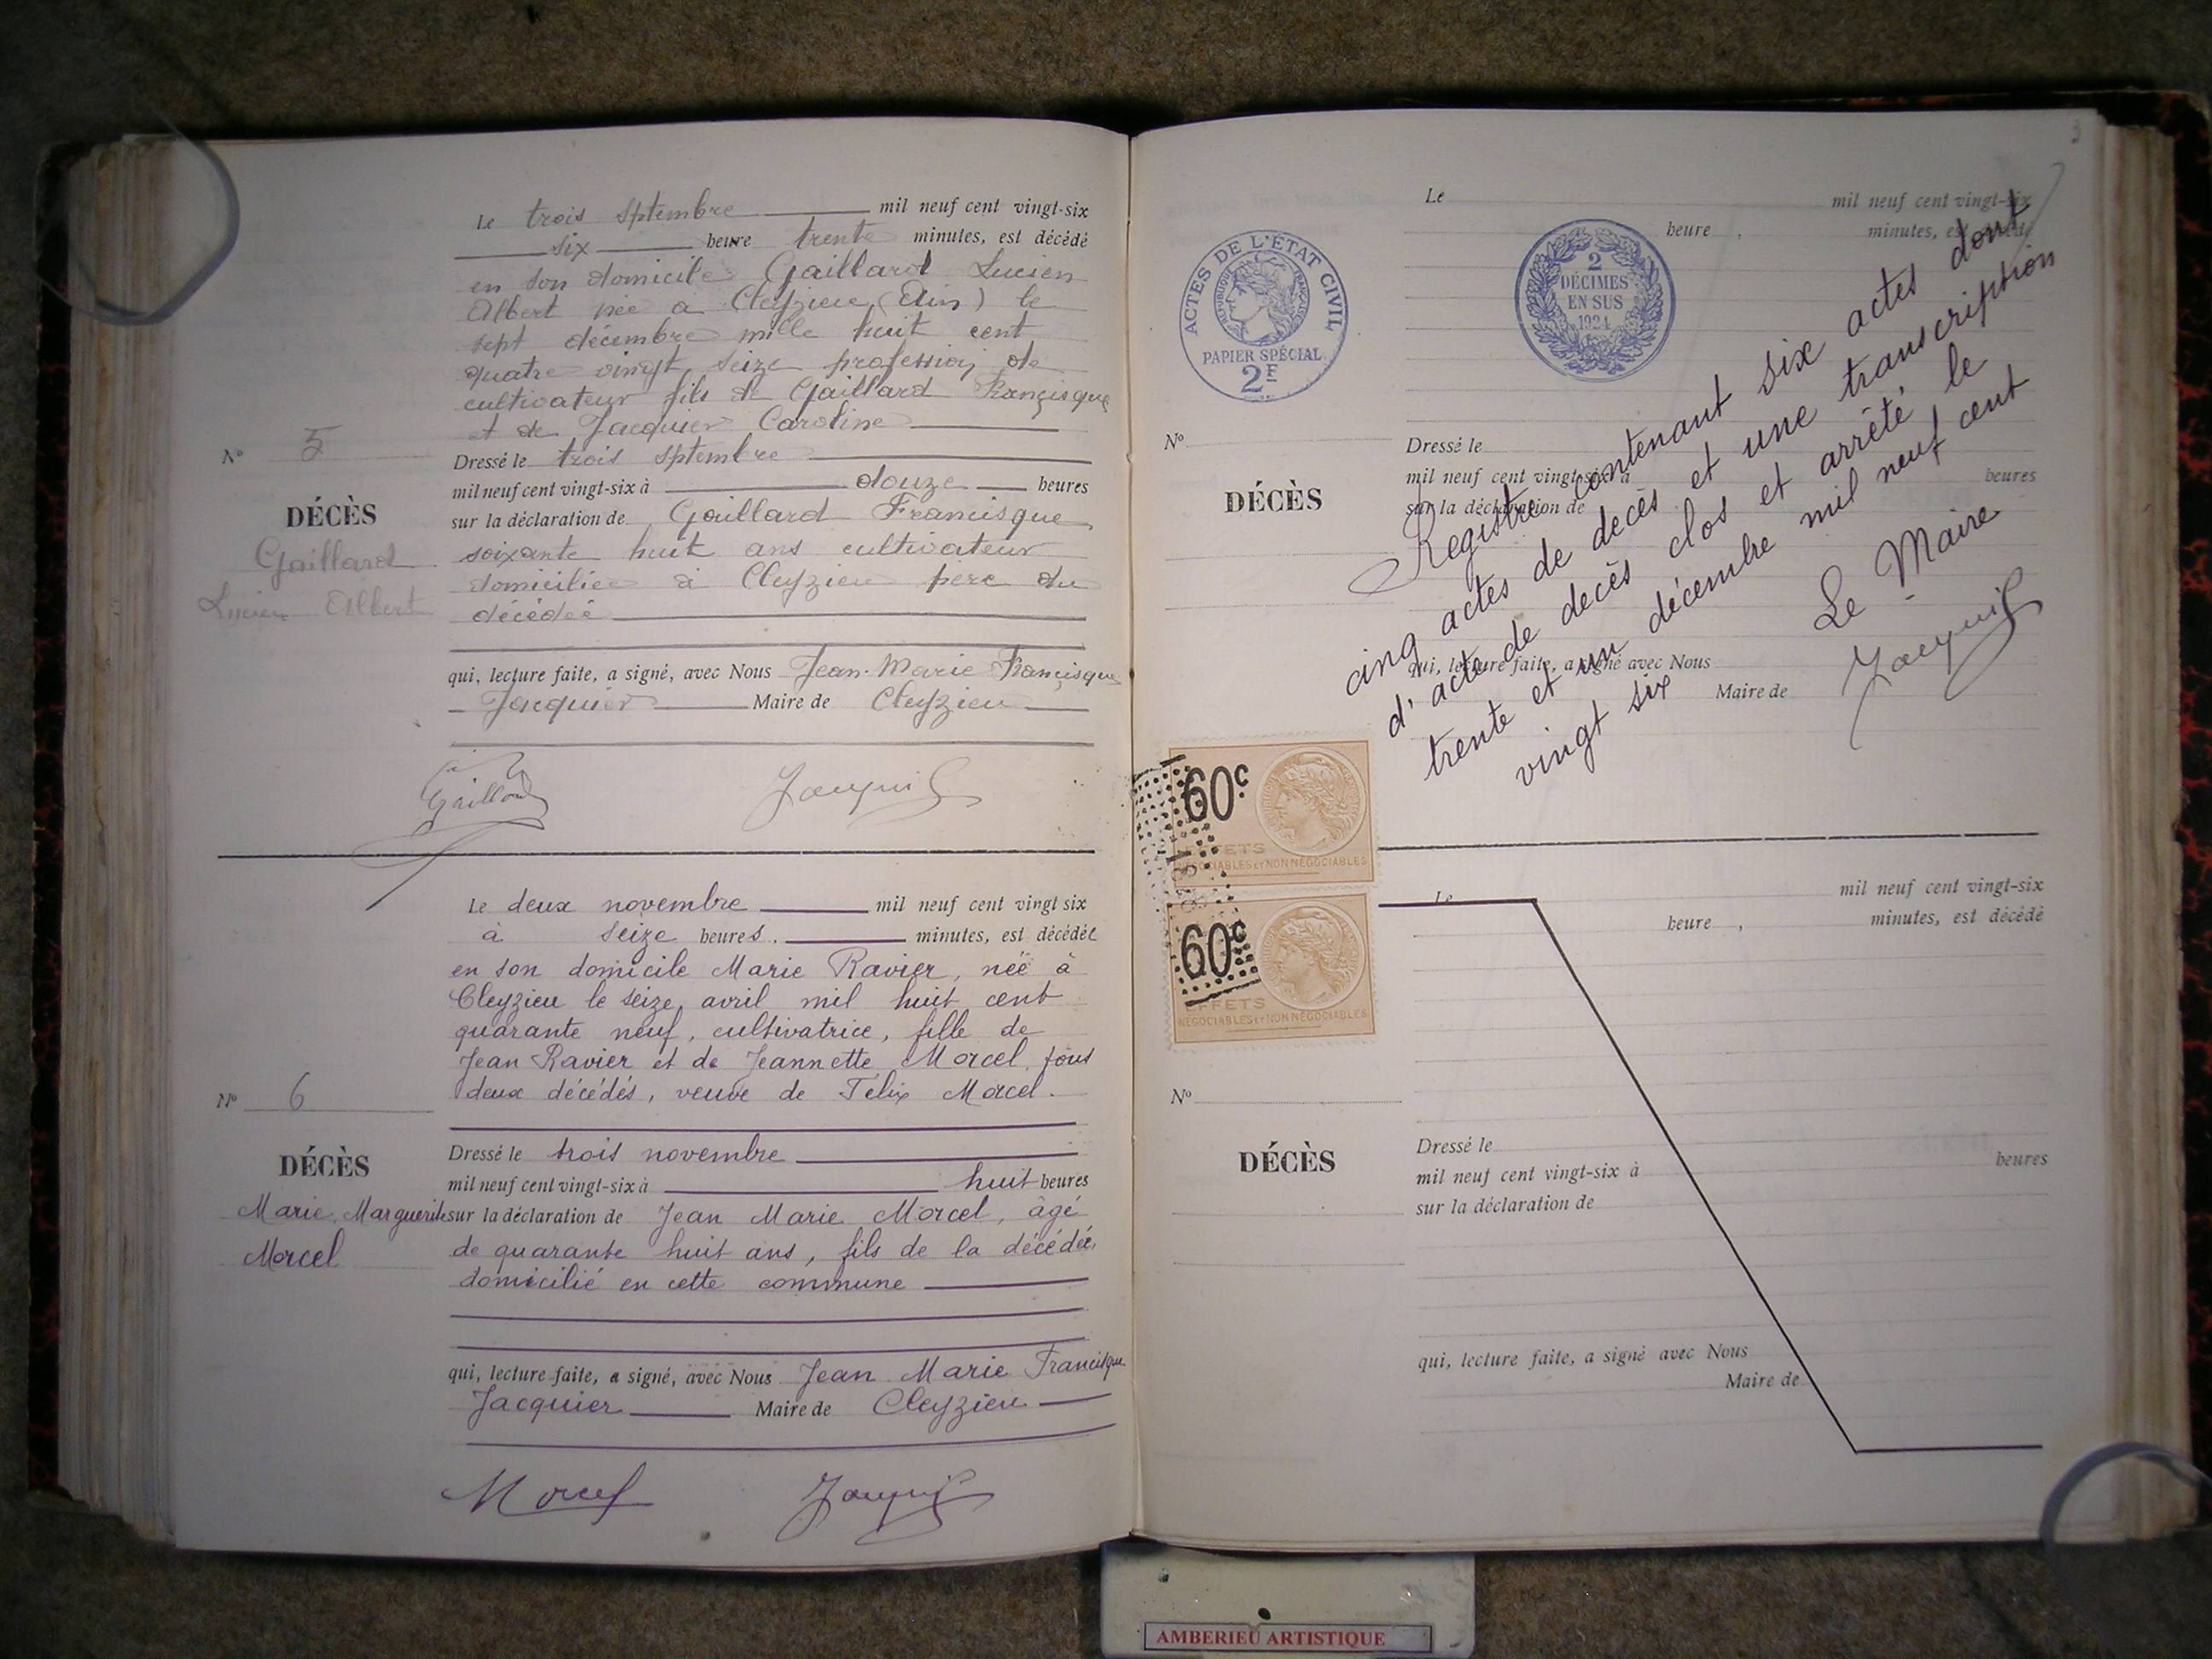 Le trois Sptembre mil neuf cent vingt-six
six heure trente minutes, est décédé
en son domicile Gaillard Lucien
Albert née a Cleyzieu (Ain) le
sept décembre mille huit cent
quatre vingt seize profession de
cultivateur fils de Gaillard Françisque
et de Jacquier Caroline
Nº 5
DÉCÈS
Gaillard
Lucien Albert
Dressé le trois Sptembre
mil neuf cent vingt-six à douze heures
sur la déclaration de Gaillard Francisque
soixante huit ans cultivateur
domiciliée à Cleyzieu père du
décédée
qui, lecture faite, a signé, avec Nous Jean-Marie Françisque
Jacquier Maire de Cleyzieu
Gaillard Jacquier
Le deux novembre mil neuf cent vingt six
à seize heures. minutes, est décédée
en son domicile Marie Ravier, née à
Cleyzieu le seize avril mil huit cent
quarante neuf, cultivatrice, fille de
Jean Ravier et de Jeannette Morcel, tous
deux décédés, veuve de Félix Morcel.
Nº 6
DÉCÈS
Marie Marguerite
Morcel
Dressé le trois novembre
mil neuf cent vingt-six à huit heures
sur la déclaration de Jean Marie Morcel, âgé
de quarante huit ans, fils de la décédée,
domicilié en cette commune
qui, lecture faite, a signé, avec Nous Jean Marie Francisque
Jacquier Maire de Cleyzieu
Morcel Jacquier
3
Le mil neuf cent vingt-six
heure , minutes, est décédé
ACTES DE L'ÉTAT CIVIL
RÉPUBLIQUE FRANÇAISE
PAPIER SPÉCIAL
2F
2
DÉCIMES
EN SUS
1924
Nº
DÉCÈS
Dressé le
mil neuf cent vingt-six à heures
sur la déclaration de
qui, lecture faite, a signé avec Nous
Maire de
Registre contenant six actes dont
cinq actes de decès et une transcription
d'acte de decès clos et arrêté le
trente et un décembre mil neuf cent
vingt six
Le Maire
Jacquier
60c
EFFETS
NÉGOCIABLES ET NON NÉGOCIABLES
60c
EFFETS
NÉGOCIABLES ET NON NÉGOCIABLES
Le mil neuf cent vingt-six
heure , minutes, est décédé
Nº
DÉCÈS
Dressé le
mil neuf cent vingt-six à heures
sur la déclaration de
qui, lecture faite, a signé avec Nous
Maire de
AMBERIEU ARTISTIQUE